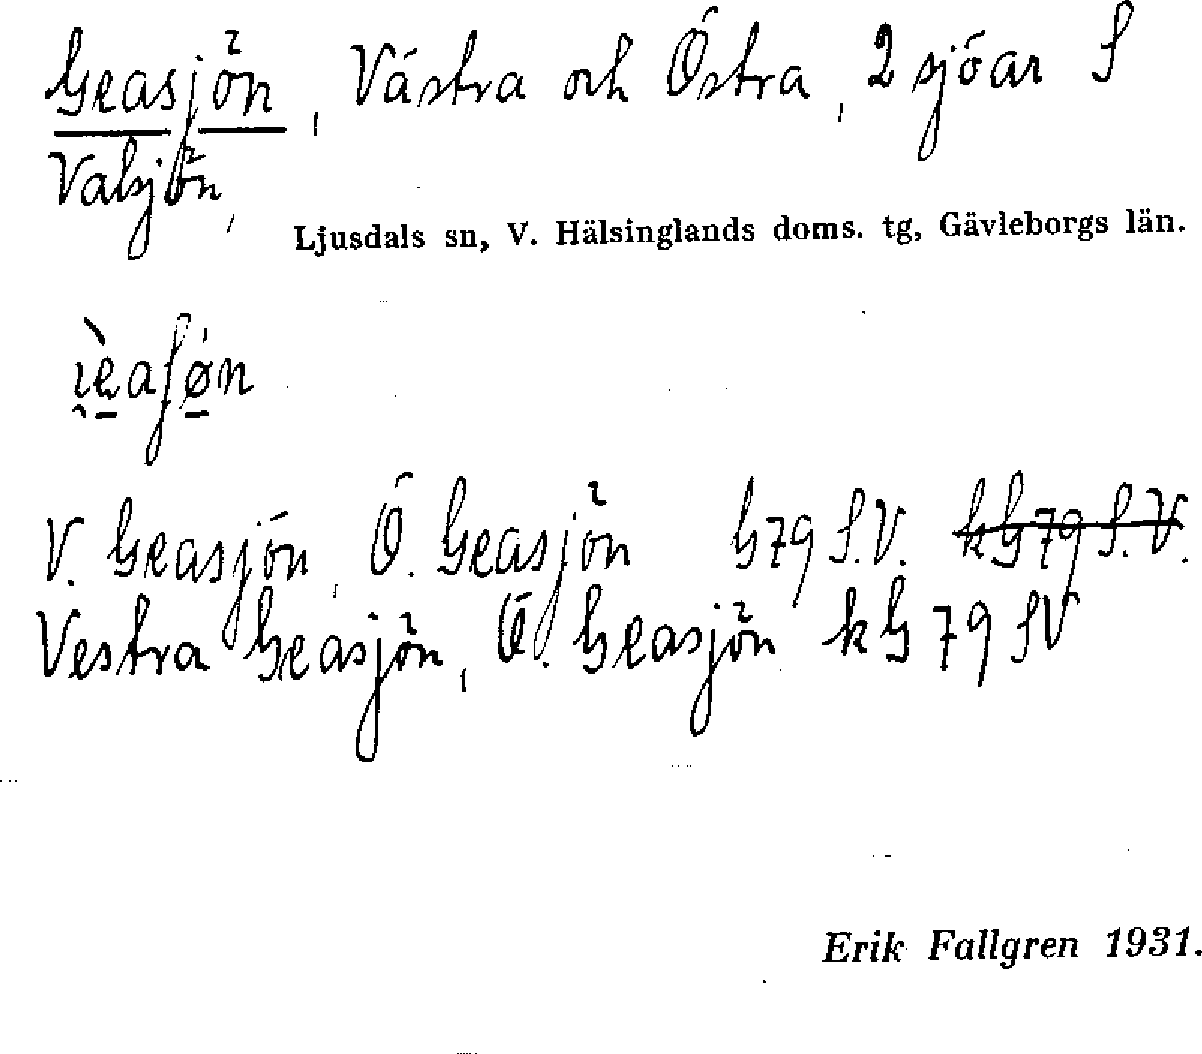 Geasjön, Västra och Östra, 2 sjöar S
Valsjön,
Ljusdals sn, V. Hälsinglands doms. tg, Gävleborgs län.
V. Geasjön, Ö. Geasjön G79 S.V. kG79 S.V.
Vestra Geasjön, Ö. Geasjön kG79 SV
Erik Fallgren 1931.